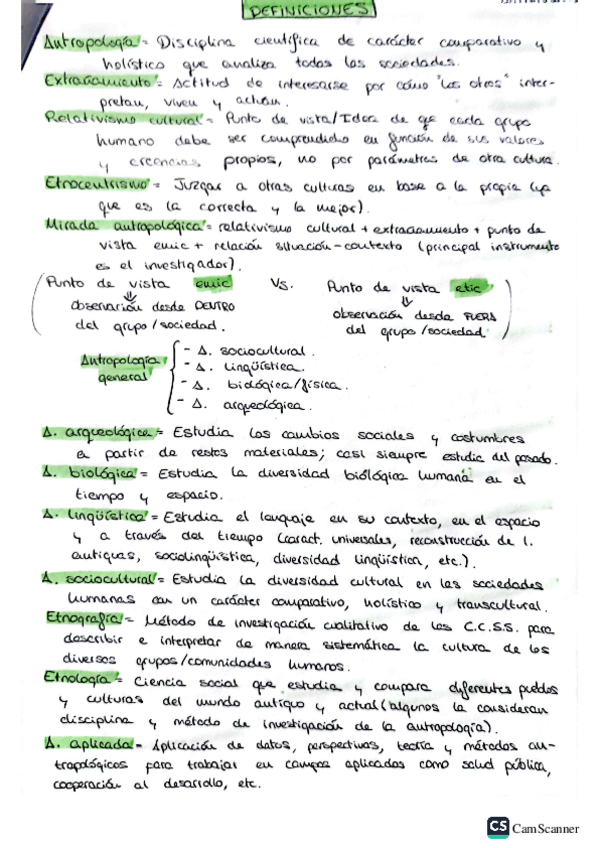 DEFINICIONES
Antropología = Disciplina científica de carácter comparativo y
holístico que analiza todas las sociedades.
Extrañamiento = Actitud de interesarse por cómo "los otros" inter-
pretan, viven y actúan.
Relativismo cultural = Punto de vista/Idea de que cada grupo
humano debe ser comprendido en función de sus valores
y creencias propios, no por parámetros de otra cultura.
Etnocentrismo = Juzgar a otras culturas en base a la propia (ya
que es la correcta y la mejor).
Mirada antropológica = relativismo cultural + extrañamiento + punto de
vista emic + relación situación-contexto (principal instrumento
es el investigador).
(Punto de vista emic VS. Punto de vista etic)
⇓ ⇓
observación desde DENTRO observación desde FUERA
del grupo/sociedad. del grupo/sociedad.
Antropología general { - A. sociocultural.
- A. lingüística.
- A. biológica/física.
- A. arqueológica.
A. arqueológica = Estudia los cambios sociales y costumbres
a partir de restos materiales; casi siempre estudia del pasado.
A. biológica = Estudia la diversidad biológica humana en el
tiempo y espacio.
A. lingüística = Estudia el lenguaje en su contexto, en el espacio
y a través del tiempo (caract. universales, reconstrucción de l.
antiguas, sociolingüística, diversidad lingüística, etc.).
A. sociocultural = Estudia la diversidad cultural en las sociedades
humanas con un carácter comparativo, holístico y transcultural.
Etnografía = Método de investigación cualitativo de las C.C.S.S. para
describir e interpretar de manera sistemática la cultura de los
diversos grupos/comunidades humanos.
Etnología = Ciencia social que estudia y compara diferentes pueblos
y culturas del mundo antiguo y actual (algunos la consideran
disciplina y método de investigación de la antropología).
A. aplicada = Aplicación de datos, perspectivas, teoría y métodos an-
tropológicos para trabajar en campos aplicados como salud pública,
cooperación al desarrollo, etc.
CS CamScanner